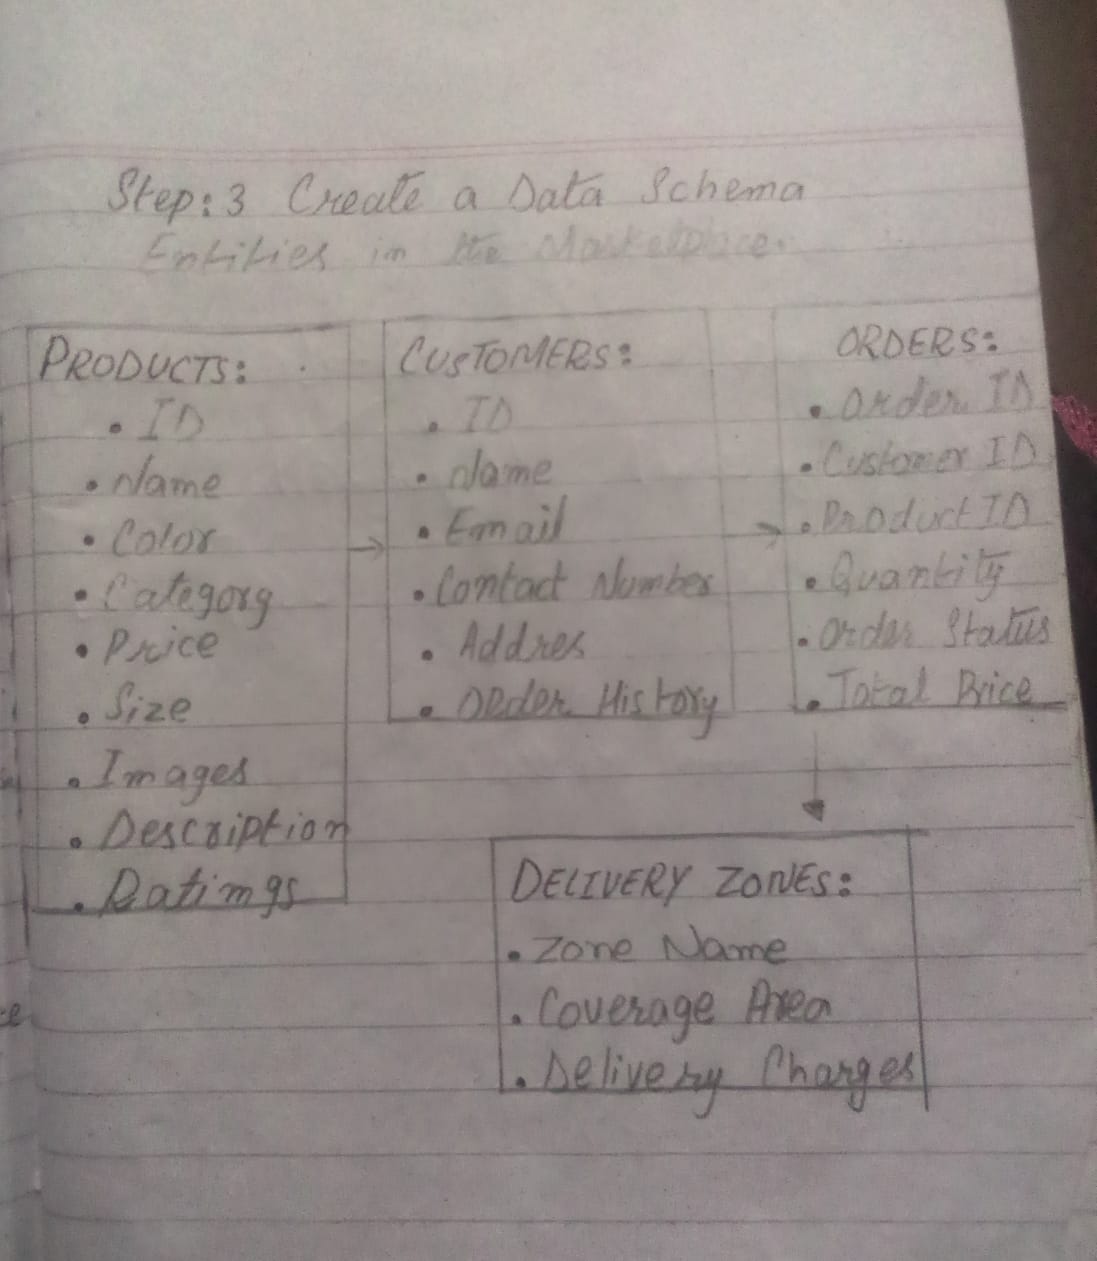 Step: 3 Create a Data Schema
Entities in the Marketplace.
PRODUCTS:
• ID
• Name
• Color
• Category
• Price
• Size
• Images
• Description
• Ratings
CUSTOMERS:
• ID
• Name
• Email
• Contact Number
• Addres
• Order History
ORDERS:
• Order ID
• Customer ID
• Product ID
• Quantity
• Order Status
• Total Price
DELIVERY ZONES:
• Zone Name
• Coverage Area
• Delivery Charges